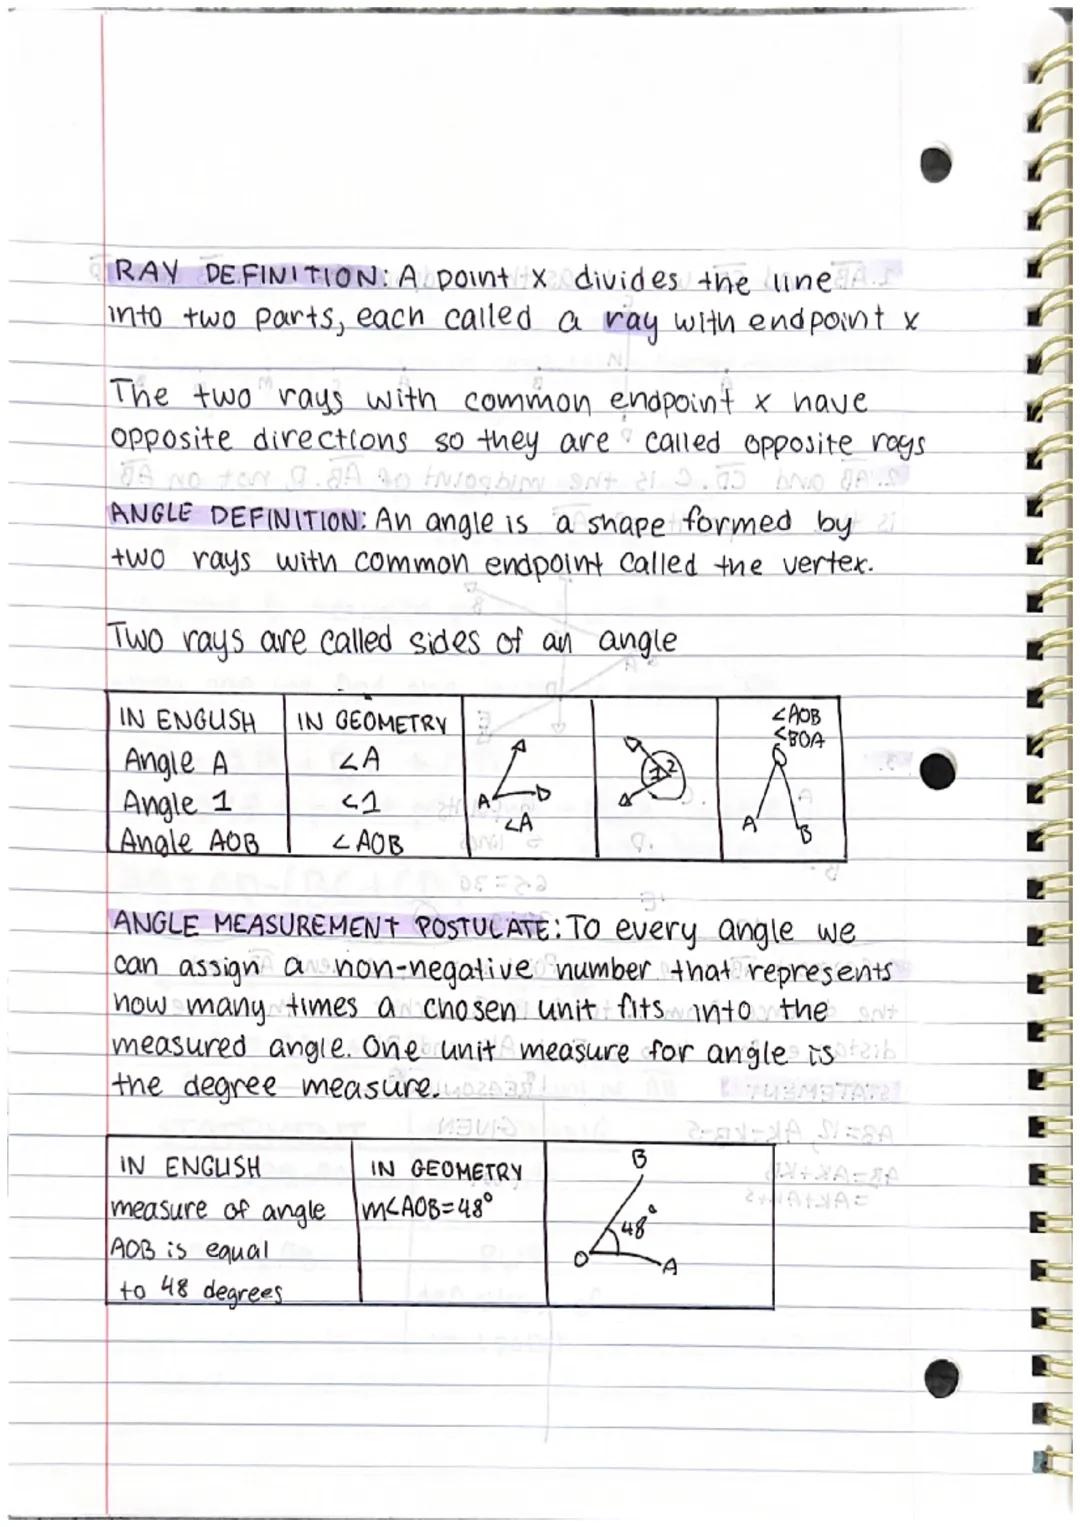 RAY DEFINITION: A point x divides the line
into two parts, each called a ray with endpoint x
The two rays with common endpoint x have
opposite directions so they are called opposite rays
ANGLE DEFINITION: An angle is a shape formed by
two rays with common endpoint called the vertex.
Two rays are called sides of an angle
IN ENGLISH IN GEOMETRY
Angle A ∠A
Angle 1 ∠1
Angle AOB ∠AOB
A
∠A
1 2
∠AOB
∠BOA
O
A B
ANGLE MEASUREMENT POSTULATE: To every angle we
can assign a non-negative number that represents
how many times a chosen unit fits into the
measured angle. One unit measure for angle is
the degree measure.
IN ENGLISH IN GEOMETRY
measure of angle m∠AOB=48°
AOB is equal
to 48 degrees
B
48°
O A